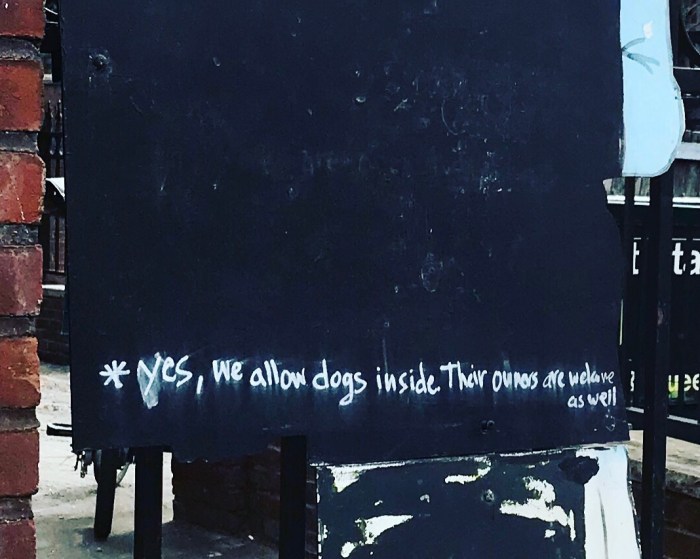 * Yes, we allow dogs inside. Their owners are welcome
as well